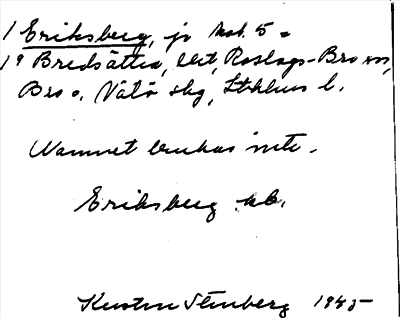 1 Eriksberg, jr kab. 5 a
19 Bredsättra, lht, Roslags-Bro sn,
Bro o. Vätö skg, Sthlms l.
Namnet brukas inte.
Eriksberg kb.
Kerstin Stenberg 1945